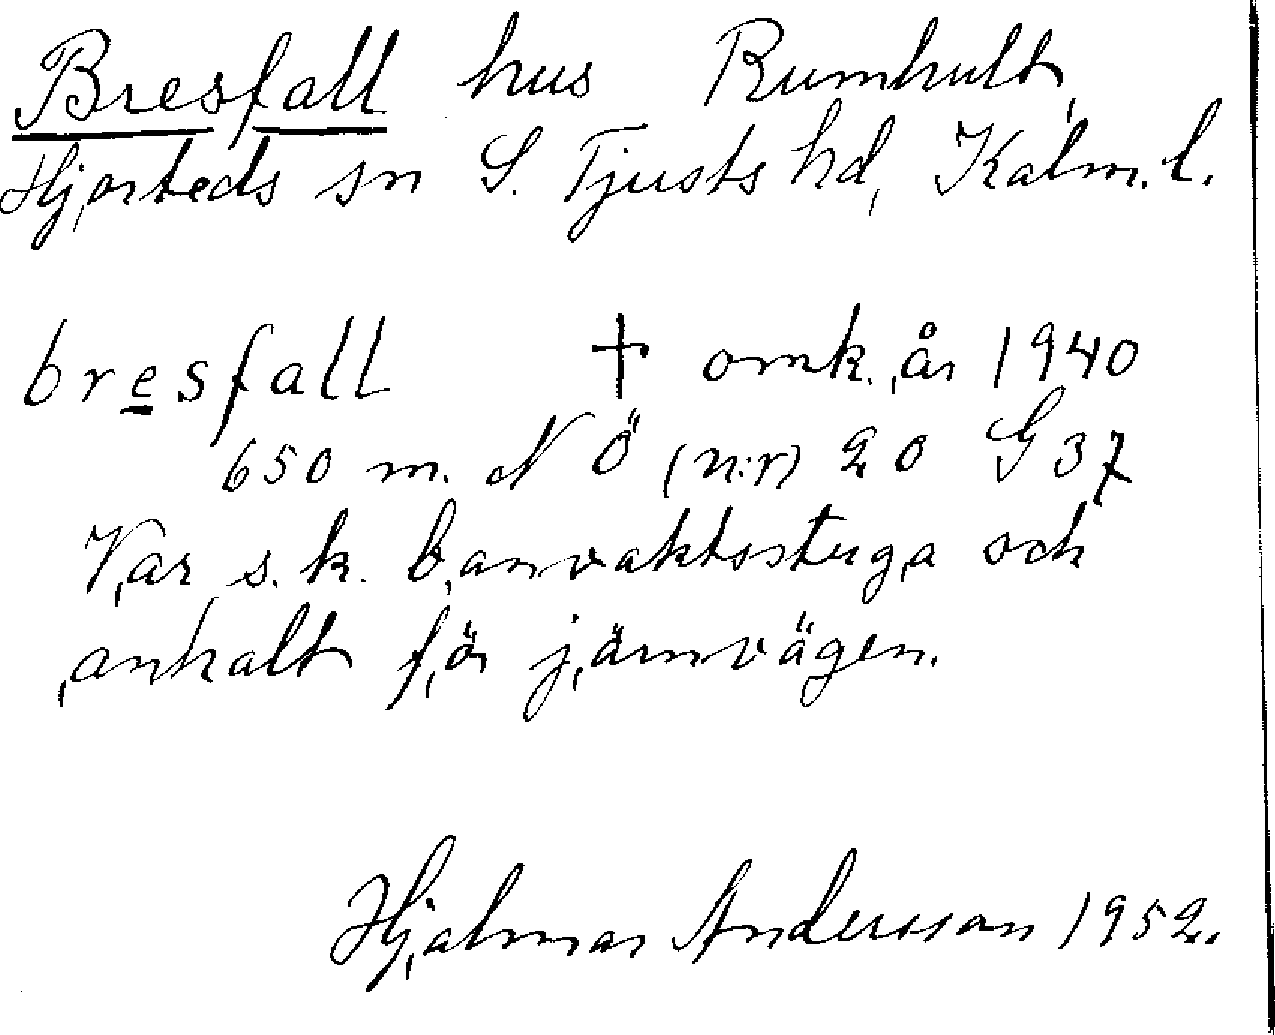 Bresfall hus Rumhult,
Hjorteds sn S. Tjusts hd, Kalm. l.
bresfall † omk. år 1940
650 m. N Ö (n:r) 20 G 37
Var s.k. banvaktsstuga och
anhalt för järnvägen.
Hjalmar Andersson 1952.